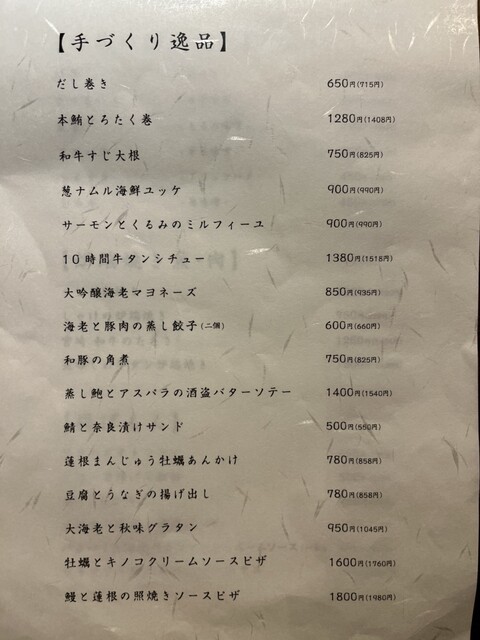 【手づくり逸品】
だし巻き 650円(715円)
本鮪とろたく巻 1280円(1408円)
和牛すじ大根 750円(825円)
葱ナムル海鮮ユッケ 900円(990円)
サーモンとくるみのミルフィーユ 900円(990円)
10時間牛タンシチュー 1380円(1518円)
大吟醸海老マヨネーズ 850円(935円)
海老と豚肉の蒸し餃子(二個) 600円(660円)
和豚の角煮 750円(825円)
蒸し鮑とアスパラの酒盗バターソテー 1400円(1540円)
鯖と奈良漬けサンド 500円(550円)
蓮根まんじゅう牡蠣あんかけ 780円(858円)
豆腐とうなぎの揚げ出し 780円(858円)
大海老と秋味グラタン 950円(1045円)
牡蠣とキノコクリームソースピザ 1600円(1760円)
鰻と蓮根の照焼きソースピザ 1800円(1980円)